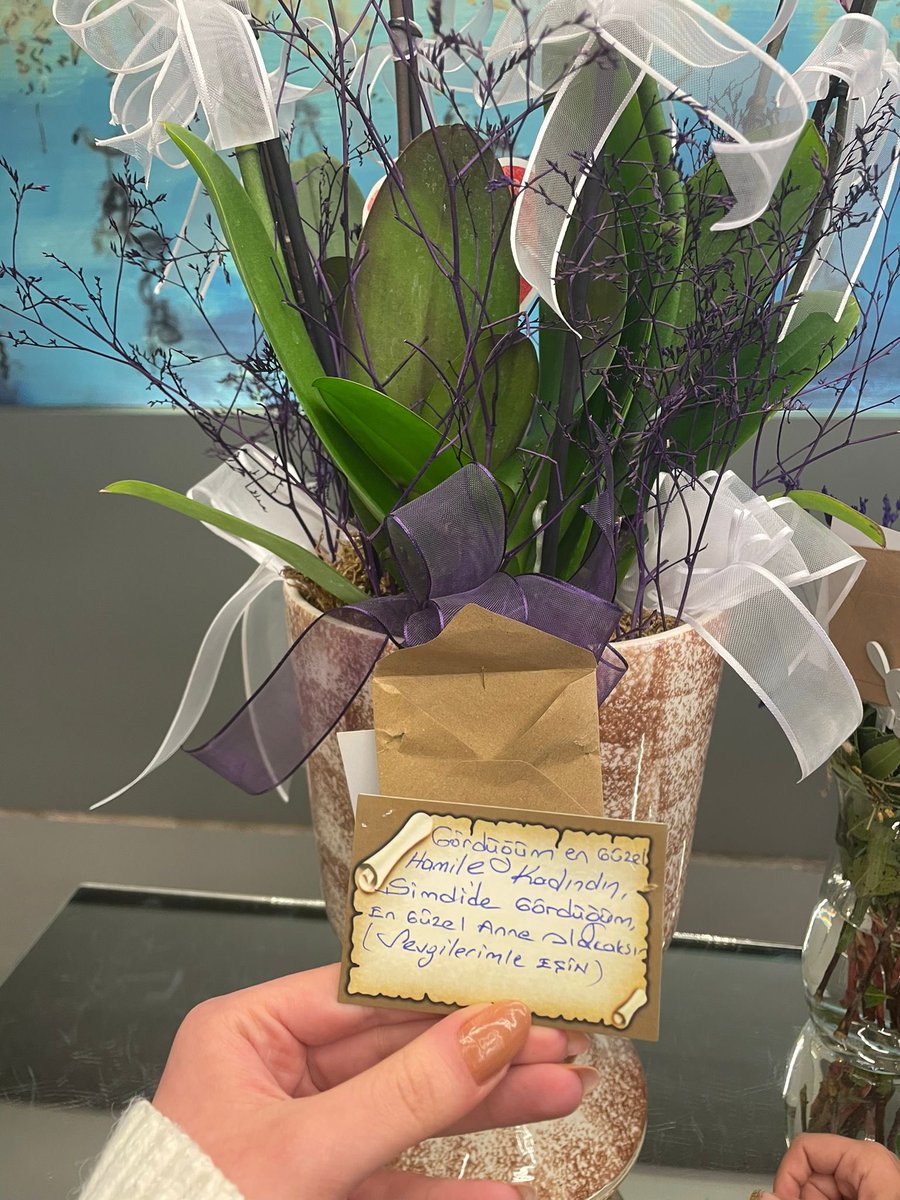 Gördüğüm en Güzel
Hamile Kadındın,
Şimdide Gördüğüm,
En Güzel Anne olacaksın
(Sevgilerimle EŞİN)